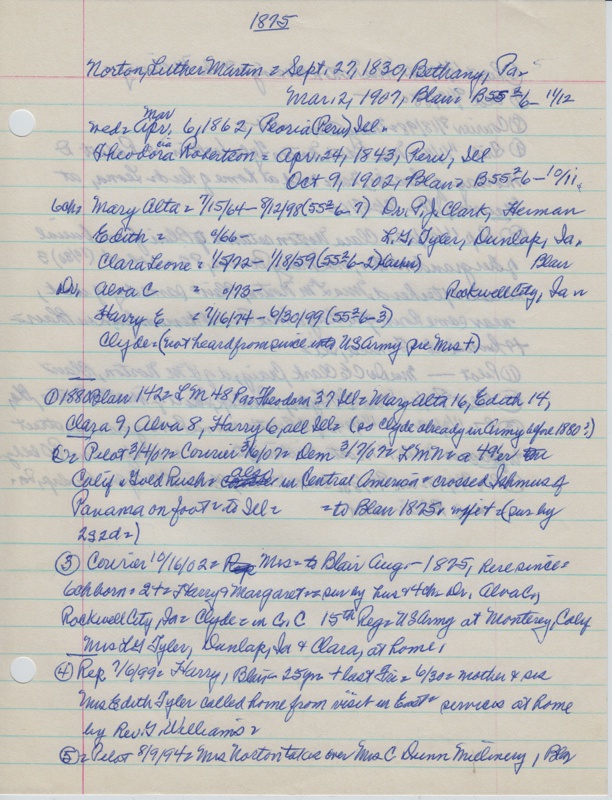 1875
Norton, Luther Martin = Sept. 27, 1830, Bethany, Pa=
Mar. 2, 1907, Blair= B55 2/6- 11/12
Mar
wed= Apr. 6, 1862, Peoria (Peru) Ill=
via
Theodora Robertson = Apr. 24, 1843, Peru, Ill
Oct 9, 1902, Blair= B55 2/6- 10/11
6ch= Mary Alta = 7/15/64- 8/12/98 (55 2/6- ) Dr. P. J. Clark, Herman
Edith = 0/66- L. G. Tyler, Dunlap, Ia=
Clara Leone= 1/5/72- 1/18/59 (55 2/6-2) Blair
Dr. Alva C = 0/73- Rockwell City, Ia=
Harry E = 7/16/74- 6/30/99 (55 2/6-3)
Clyde= (not heard from since into US Army pre Mrs +)
① 1880 Blair 142= L M 48 Pa= Theodora 37 Ill= Mary Alta 16, Edith 14,
Clara 9, Alva 8, Harry 6, all Ill= (so Clyde already in Army before 1880?)
②= Pilot 3/4/07= Courier 3/6/07= Dem 3/7/07= L M N= a 49er
Calif= Gold Rush= also in Central America + crossed Isthmus of
Panama on foot= to Ill= =to Blair 1875= (sur by
2s2d=)
③ Courier 10/16/02= Mrs= to Blair Aug- 1875, here since=
6ch born= 2+= Harry + Margaret= sur by hus + 4ch= Dr. Alva C,
Rockwell City, Ia= Clyde= in Co, C 15th Reg= US Army at Monterey, Calif
Mrs L G Tyler, Dunlap, Ia + Clara, at home,
④ Rep 7/6/99= Harry, Blair= 25yr + last = 6/30= mother & sis
Mrs Edith Tyler called home from visit in East= services at home
by Rev. G Williams=
⑤= Pilot 8/9/94= Mrs Norton takes over Mrs C Dunn Millinery, Blair